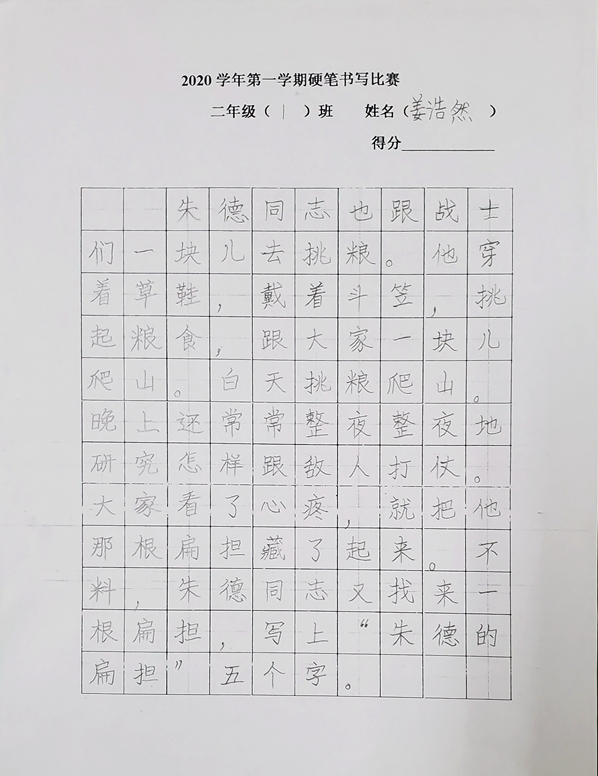 2020 学年第一学期硬笔书写比赛
二年级（ 1 ）班 姓名（姜浩然 ）
得分__________
朱德同志也跟战士
们一块儿去挑粮。他穿
着草鞋，戴着斗笠，挑
起粮食，跟大家一块儿
爬山。白天挑粮爬山。
晚上还常常整夜整夜地
研究怎样跟敌人打仗。
大家看了心疼，就把他
那根扁担藏了起来。不
料，朱德同志又找来一
根扁担，写上“朱德的
扁担”五个字。